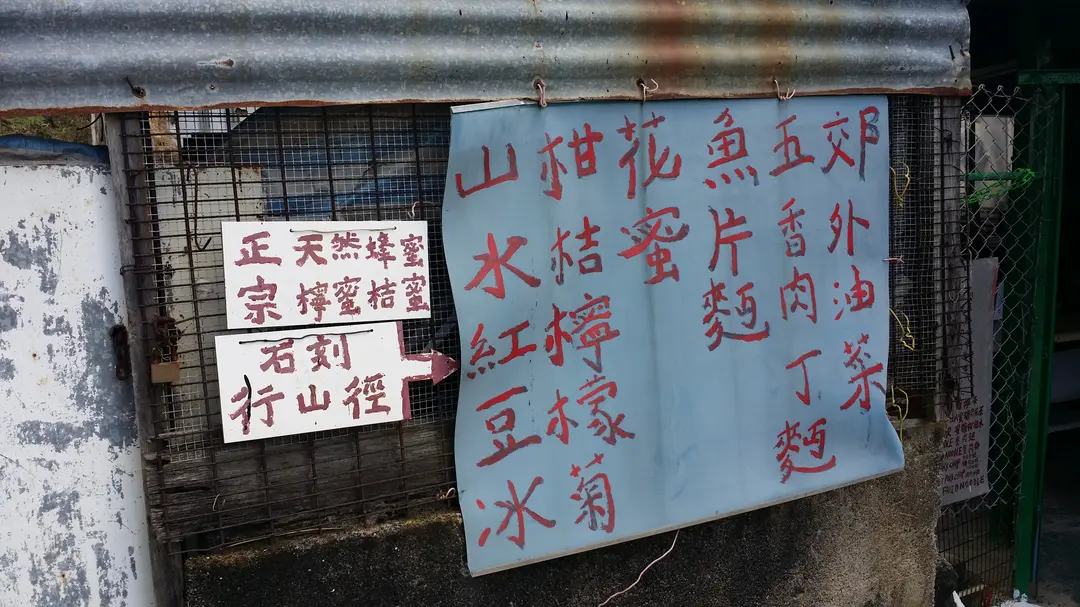 正 天然蜂蜜
宗 檸蜜桔蜜
石刻
行山徑
山水紅豆冰
柑桔檸檬菊
花蜜
魚片麵
五香肉丁麵
郊外油菜
NOODLE